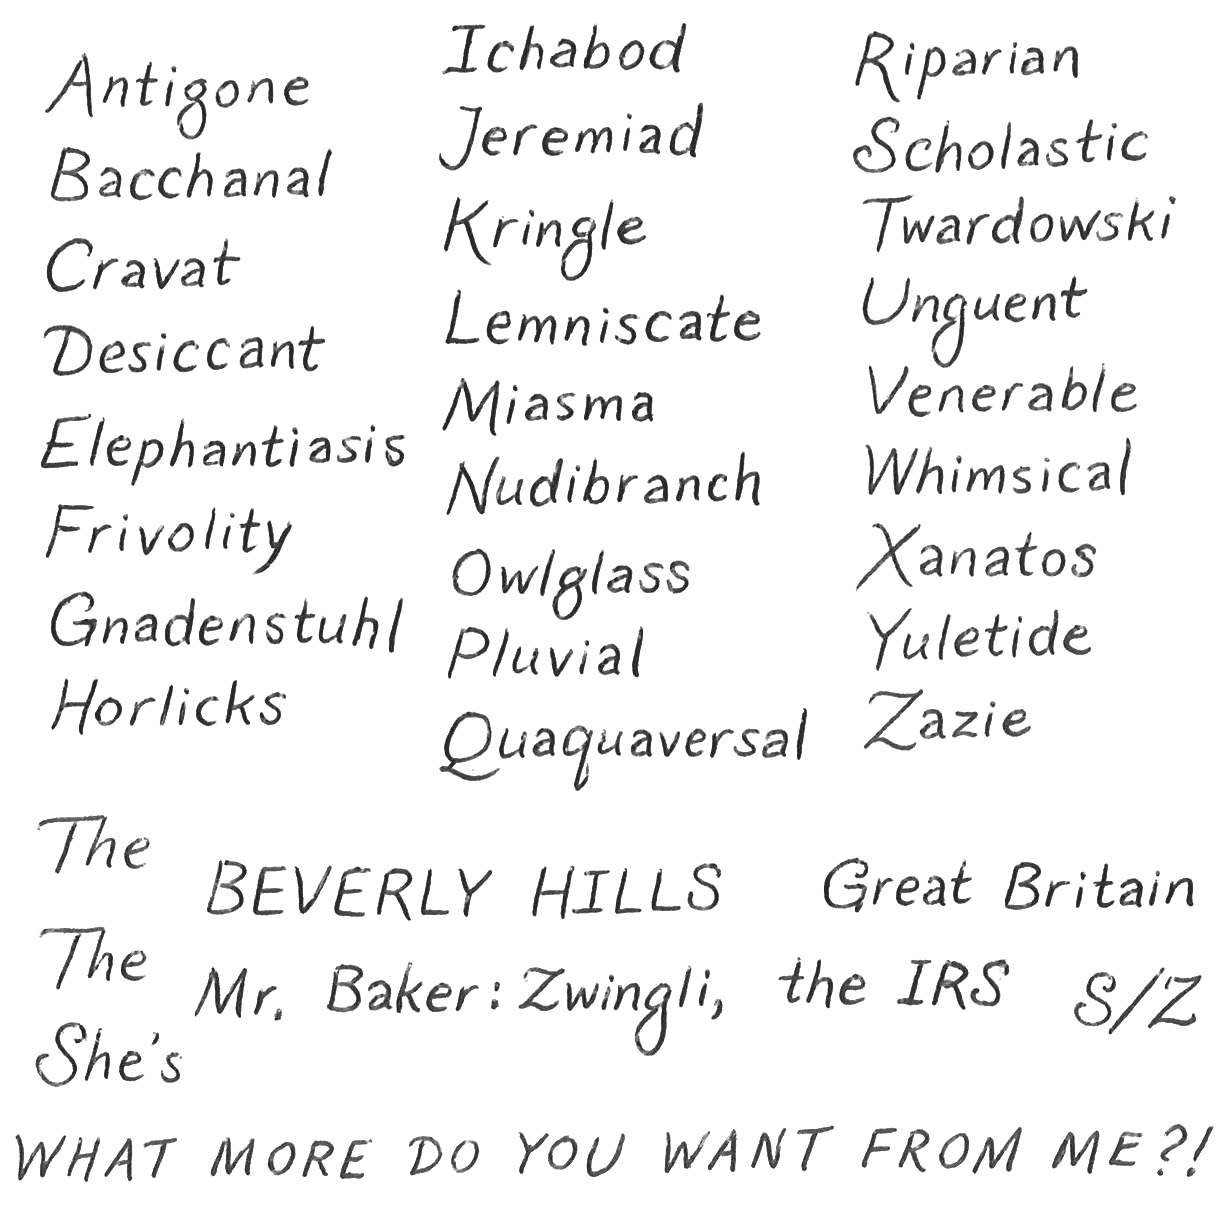 Antigone
Bacchanal
Cravat
Desiccant
Elephantiasis
Frivolity
Gnadenstuhl
Horlicks
Ichabod
Jeremiad
Kringle
Lemniscate
Miasma
Nudibranch
Owlglass
Pluvial
Quaquaversal
Riparian
Scholastic
Twardowski
Unguent
Venerable
Whimsical
Xanatos
Yuletide
Zazie
The
BEVERLY HILLS Great Britain
The
Mr. Baker: Zwingli, the IRS S/Z
She's
WHAT MORE DO YOU WANT FROM ME?!